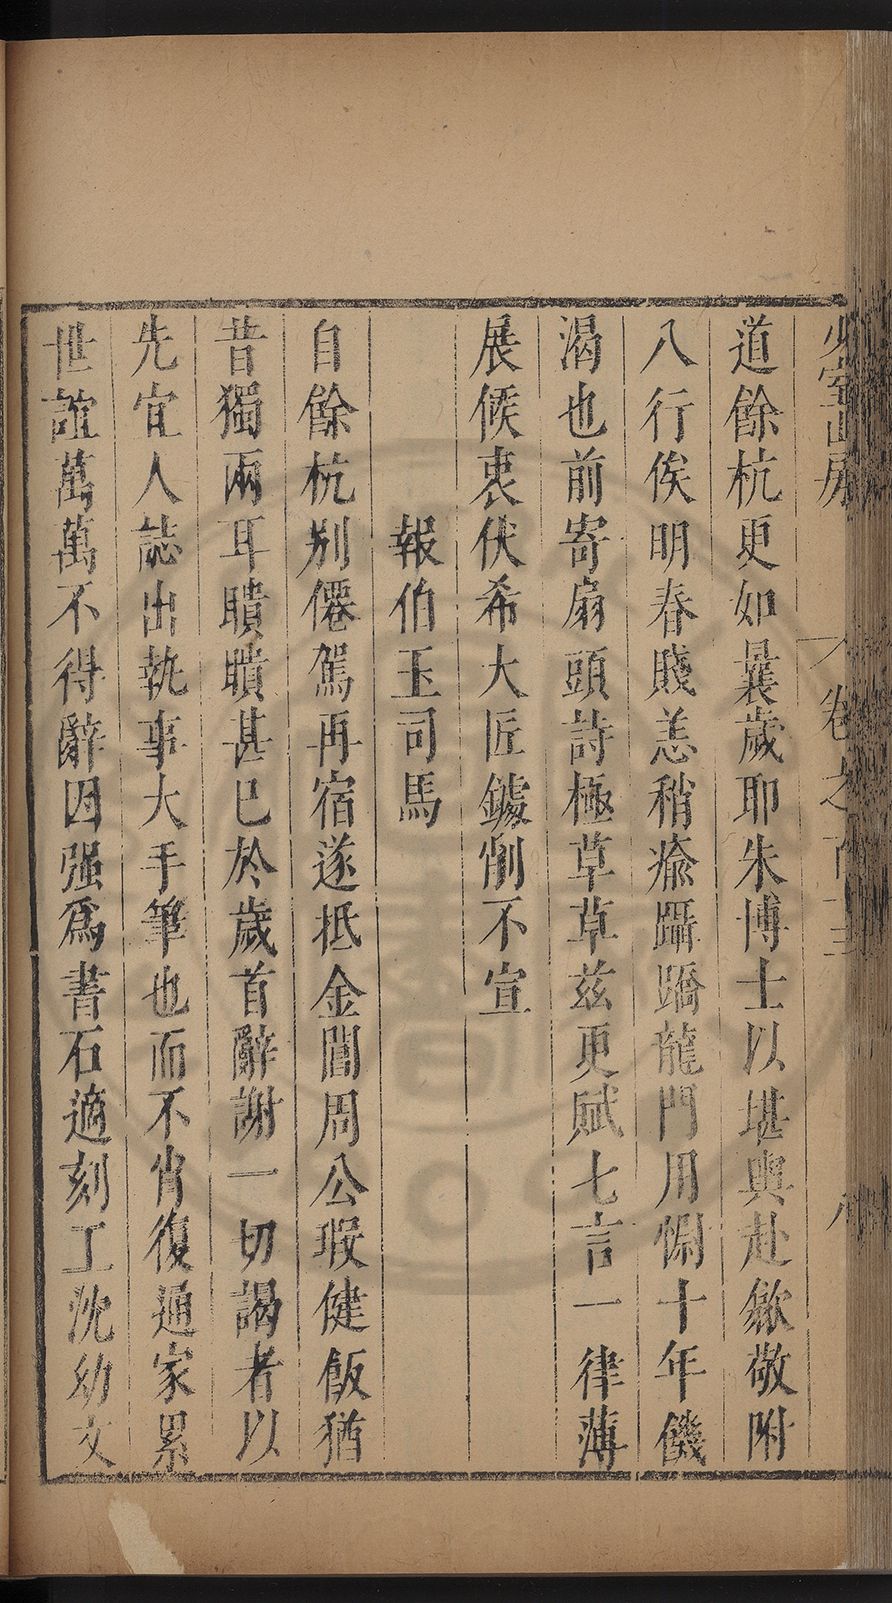 少室山房
卷之百十三
八
道餘杭更如曩歲耶朱博士以堪輿赴歙敬附
八行俟明春賤恙稍瘉躡蹻龍門用慰十年饑
渴也前寄扇頭詩極草草茲更賦七言一律薄
展候衷伏希大匠鐻削不宣
報伯玉司馬
自餘杭別僊駕再宿遂抵金閶周公瑕健飯猶
昔獨兩耳聵聵甚巳於歲首辭謝一切謁者以
先宜人誌出執事大手筆也而不肖復通家累
世誼萬萬不得辭因强爲書石適刻工沈幼文